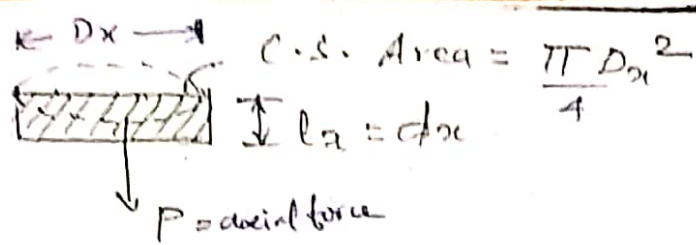 Dx
C.S. Area = πDx²/4
lx = dx
P = axial force